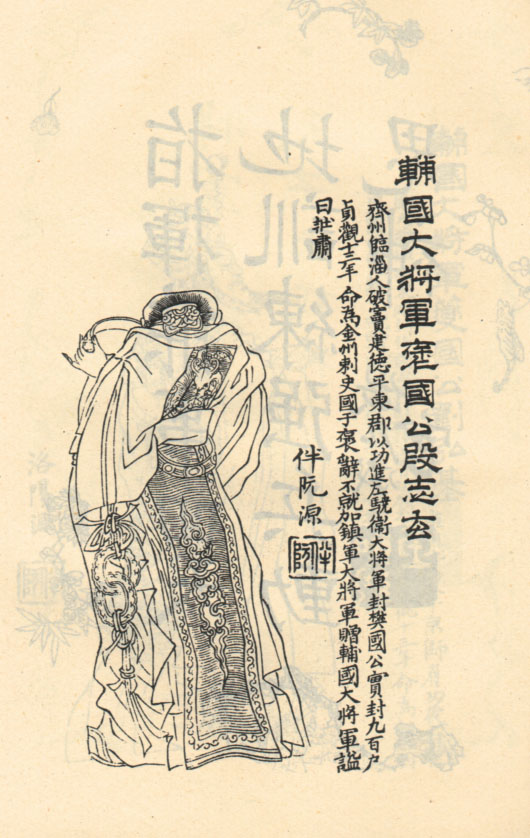 輔國大將軍襃國公段志玄
齊州臨淄人破竇建德平東郡以功進左驍衛大將軍封樊國公實封九百戶
貞觀十二年命為金州刺史國于襃辭不就加鎮軍大將軍贈輔國大將軍謚
曰壯肅
伴阮源
伴阮